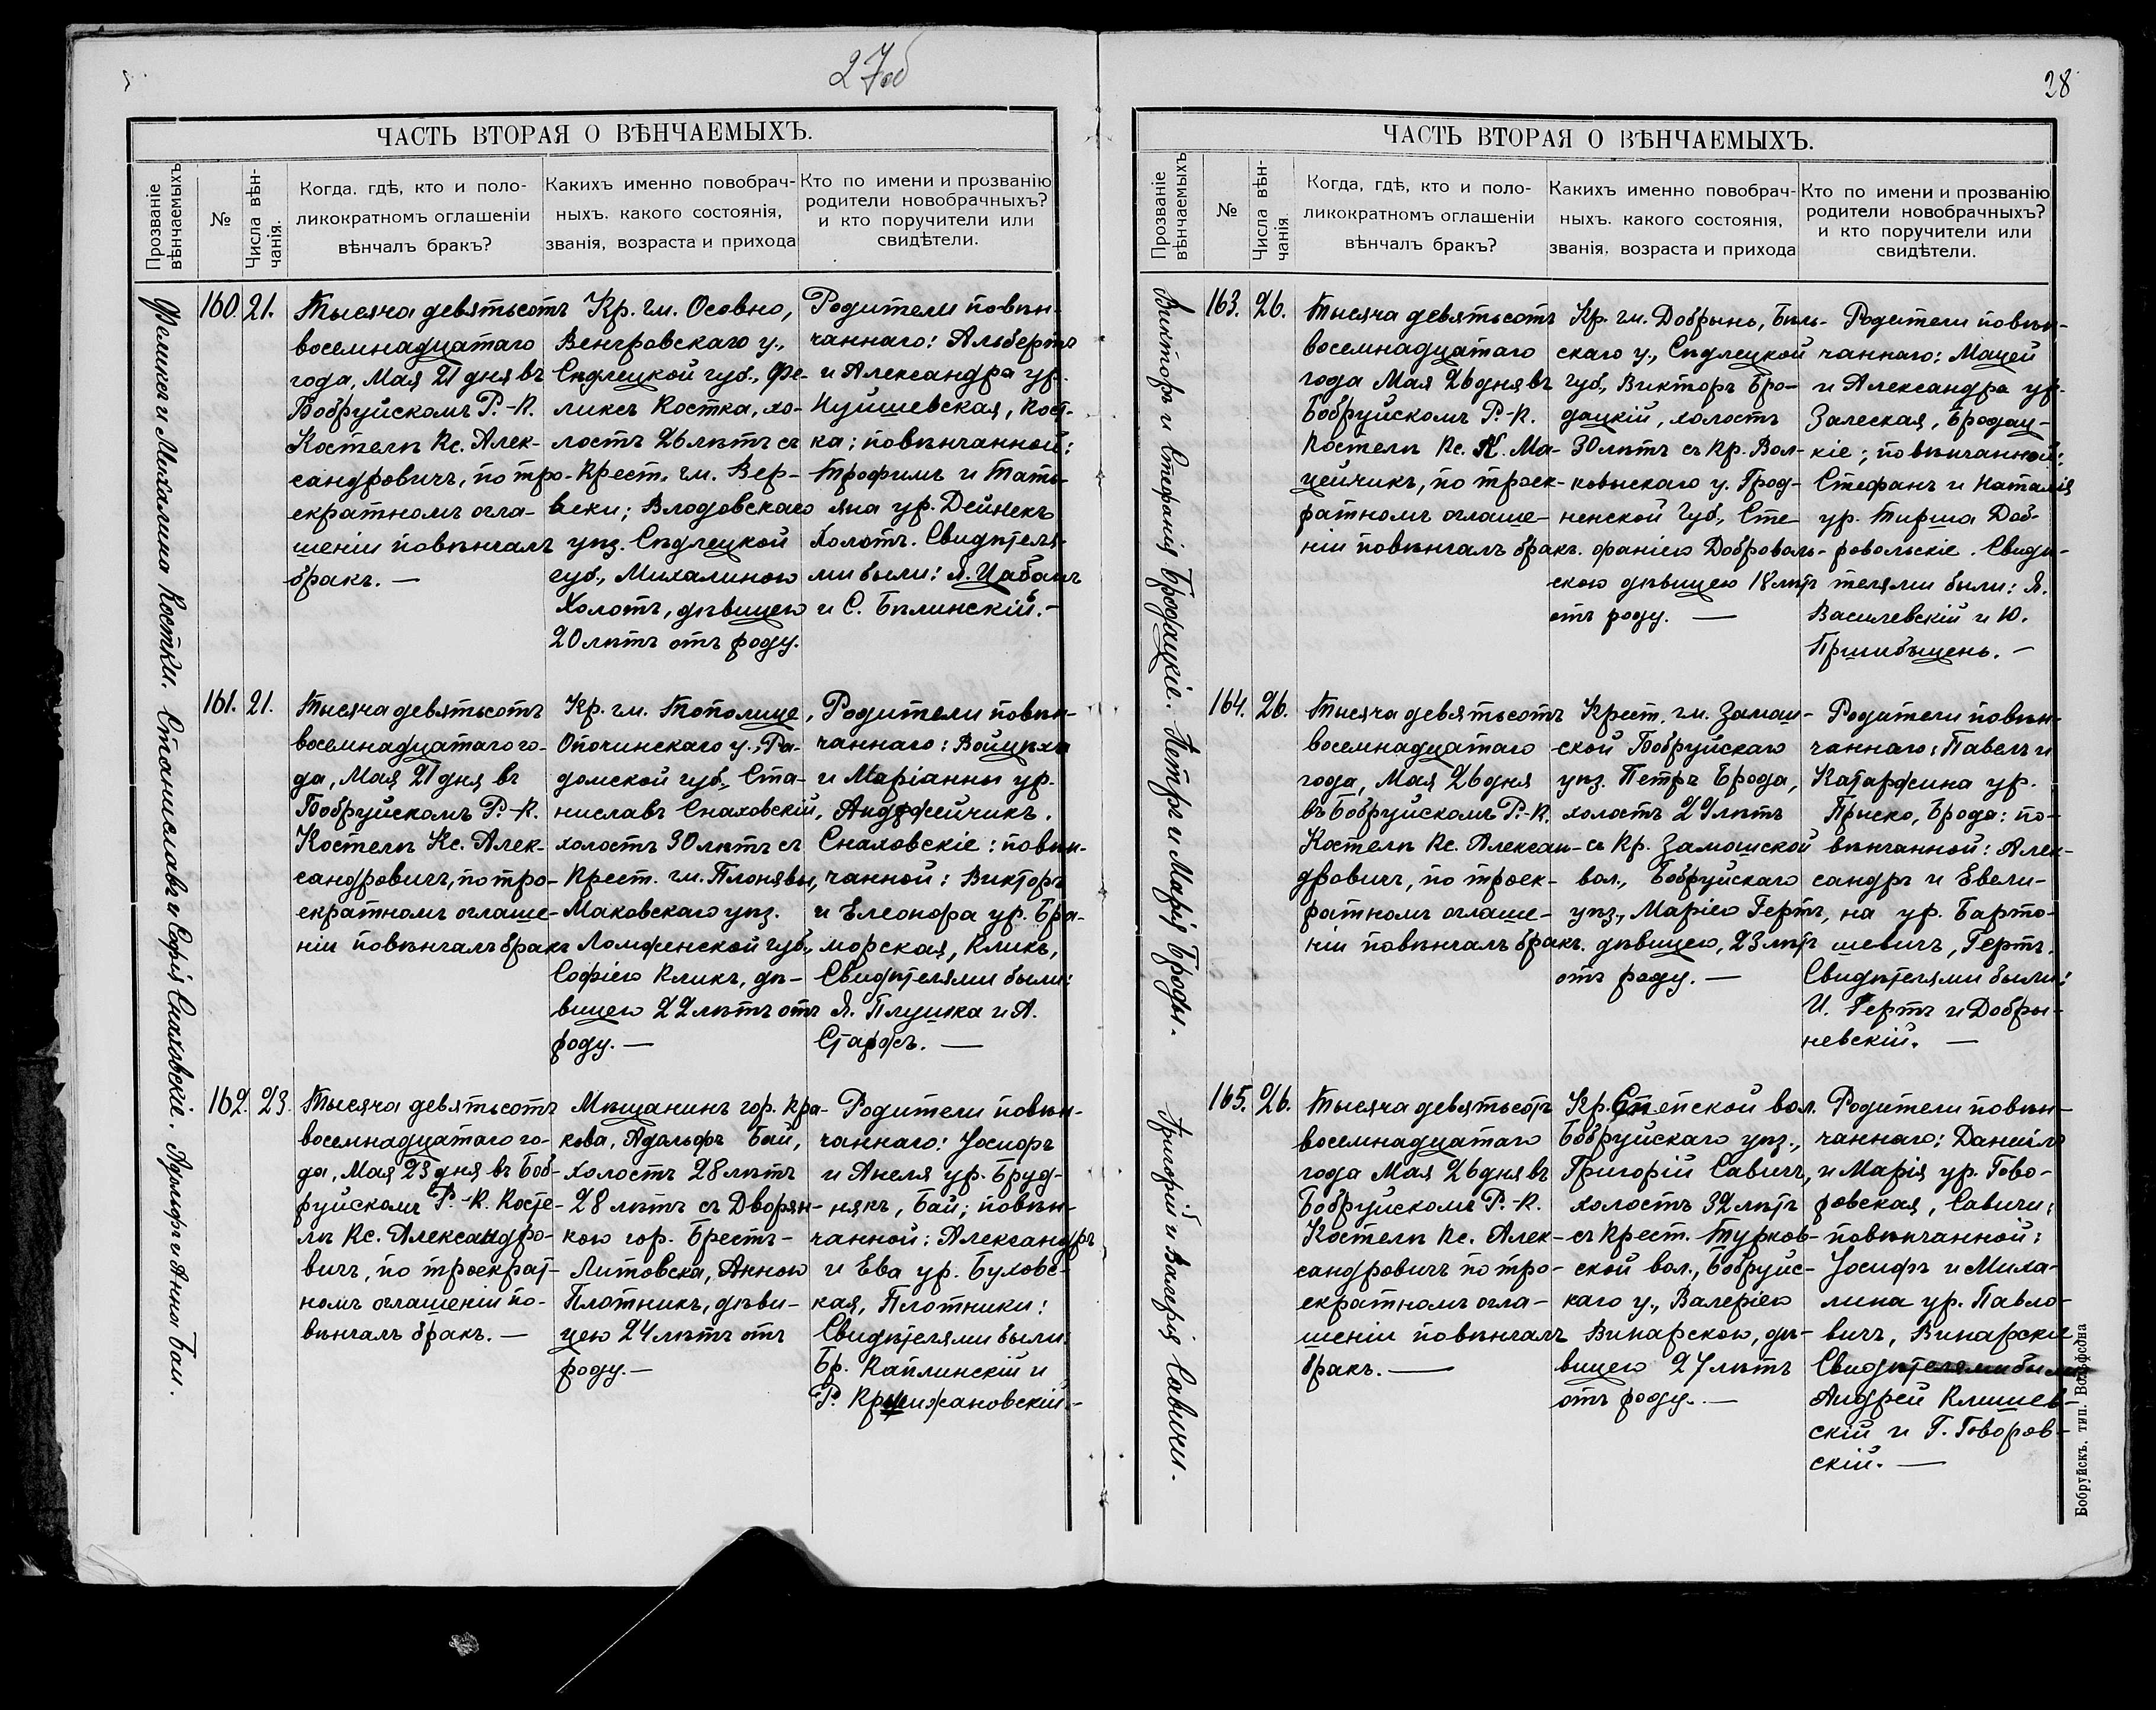 27об
ЧАСТЬ ВТОРАЯ О ВѢНЧАЕМЫХЪ.
Прозваніе
вѣнчаемыхъ
№
Числа вѣн-
чанія.
Когда, гдѣ, кто и поло-
ликократномъ оглашеніи
вѣнчалъ бракъ?
Какихъ именно повобрач-
ныхъ. какого состоянія,
званія, возраста и прихода
Кто по имени и прозванію
родители новобрачныхъ?
и кто поручители или
свидѣтели.
Феликсъ и Михалина Костки.
160. 21.
Тысяча девятьсотъ
восемнадцатаго
года, Мая 21 дня въ
Бобруйскомъ Р.-К.
Костелѣ Кс. Алек-
сандровичъ, по тро-
екратномъ огла-
шеніи повѣнчалъ
бракъ. —
Кр. гм. Осовно,
Венгровскаго у.,
Сѣдлецкой губ., Фе-
ликсъ Костка, хо-
лостъ 26 лѣтъ съ
Крест. гм. Вер-
вски; Влодовскаго
уѣз. Сѣдлецкой
губ., Михалиною
Холотъ, дѣвицею
20 лѣтъ отъ роду.
Родители повѣн-
чаннаго: Альбертъ
и Александра ур.
Нуйшевская, Кост-
ка; повѣнчанной:
Трофимъ и Тать-
яна ур. Дейнекъ
Холотъ. Свидѣтеля-
ми были: Л. Цабанъ
и С. Бѣлинскій. —
Станиславъ и Софія Снаховскіе.
161. 21.
Тысяча девятьсотъ
восемнадцатаго го-
да, Мая 21 дня въ
Бобруйскомъ Р.-К.
Костелѣ Кс. Алек-
сандровичъ, по тро-
екратномъ оглаше-
ніи повѣнчалъ бракъ
Кр. гм. Тополице,
Опочинскаго у., Ра-
домской губ., Ста-
ниславъ Снаховскій,
холостъ 30 лѣтъ съ
Крест. гм. Плонявы,
Маковскаго уѣз.
Ломженской губ.,
Софіею Кликъ, дѣ-
вицею 22 лѣтъ отъ
роду. —
Родители повѣн-
чаннаго: Войцѣха
и Маріанны ур.
Андржейчикъ.
Снаховскіе: повѣн-
чанной: Викторъ
и Елеонора ур. Бра-
морская, Кликъ,
Свидѣтелями были:
Я. Плушка и А.
Старфъ. —
Адольфъ и Анна Баи.
162. 23.
Тысяча девятьсотъ
восемнадцатаго го-
да, Мая 23 дня въ Боб-
руйскомъ Р.-К. Косте-
лѣ Кс. Александро-
вичъ, по троекрат-
номъ оглашеніи по-
вѣнчалъ бракъ. —
Мѣщанинъ гор. Кра-
кова, Адольфъ Бай,
холостъ 28 лѣтъ
28 лѣтъ съ Дворян-
кою гор. Брестъ-
Литовска, Анною
Плотникъ, дѣви-
цею 24 лѣтъ отъ
роду. —
Родители повѣн-
чаннаго: Іосифъ
и Анеля ур. Бруд-
някъ, Бай; повѣн-
чанной: Александръ
и Ева ур. Буховс-
кая, Плотники:
Свидѣтелями были:
Бр. Каплинскій и
Р. Кршижановскій. —
28
ЧАСТЬ ВТОРАЯ О ВѢНЧАЕМЫХЪ.
Прозваніе
вѣнчаемыхъ
№
Числа вѣн-
чанія.
Когда, гдѣ, кто и поло-
ликократномъ оглашеніи
вѣнчалъ бракъ?
Какихъ именно повобрач-
ныхъ. какого состоянія,
званія, возраста и прихода
Кто по имени и прозванію
родители новобрачныхъ?
и кто поручители или
свидѣтели.
Викторъ и Стефанія Бродацкіе.
163. 26.
Тысяча девятьсотъ
восемнадцатаго
года Мая 26 дня въ
Бобруйскомъ Р.-К.
Костелѣ Кс. К. Ма-
цейчикъ, по троек-
ратномъ оглаше-
ніи повѣнчалъ бракъ.
Кр. гм. Добрынь, Бѣль-
скаго у., Сѣдлецкой
губ., Викторъ Бро-
дацкій, холостъ
30 лѣтъ съ Кр. Вол-
ковыскаго у. Грод-
ненской Губ., Сте-
фаніею Доброволь-
скою дѣвицею 18 лѣтъ
отъ роду. —
Родители повѣн-
чаннаго: Мацей
и Александра ур.
Залеская, Бродац-
кіе; повѣнчанной:
Стефанъ и Наталія
ур. Тирша Доб-
ровольскіе. Свидѣ-
телями были: Я.
Василевскій и Ю.
Пршибыщень. —
Петръ и Марія Броды.
164. 26.
Тысяча девятьсотъ
восемнадцатаго
года, Мая 26 дня
въ Бобруйскомъ Р.-К.
Костелѣ Кс. Алексан-
дровичъ, по троек-
ратномъ оглаше-
ніи повѣнчалъ бракъ.
Крест. гм. Замош-
ской Бобруйскаго
уѣз. Петръ Брода,
холостъ 29 лѣтъ
съ Кр. Замошской
вол., Бобруйскаго
уѣз., Маріею Гертъ,
дѣвицею, 23 лѣтъ
отъ роду. —
Родители повѣн-
чаннаго: Павелъ и
Катаржина ур.
Прыско, Брода: по-
вѣнчанной: Алек-
сандръ и Евели-
на ур. Барто-
шевичъ, Гертъ.
Свидѣтелями были:
И. Гертъ и Добры-
невскій. —
Григорій и Валерія Савичи.
165. 26.
Тысяча девятьсотъ
восемнадцатаго
года Мая 26 дня въ
Бобруйскомъ Р.-К.
Костелѣ Кс. Алек-
сандровичъ по тро-
екратномъ огла-
шеніи повѣнчалъ
бракъ. —
Кр. вол.
Бобруйскаго уѣз.,
Григорій Савичъ,
холостъ 32 лѣтъ
съ Крест. Турков-
ской вол., Бобруйс-
каго у., Валеріею
Винарскою, дѣ-
вицею 27 лѣтъ
отъ роду. —
Родители повѣн-
чаннаго: Даніилъ
и Марія ур. Гово-
ровская, Савичи;
повѣнчанной:
Іосифъ и Миха-
лина ур. Павло-
вичъ, Винарскіе
Свидѣтелями были
Андрей Клишев-
скій и Г. Говоров-
скій. —
Бобруйскъ, тип. Вольфсона